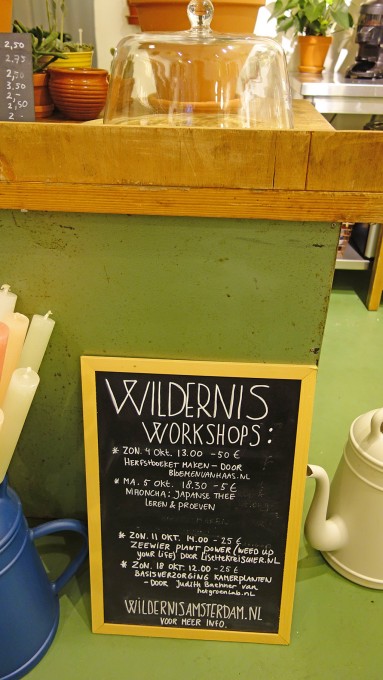 2,50
2,75
2,50
3,50
2,-
1,50
2-
WILDERNIS
WORKSHOPS:
* ZON. 4 OKT. 13.00 - 50 €
HERFSTBOEKET MAKEN - DOOR
BLOEMENVANHAAS.NL
* MA. 5 OKT. 18.30 - 5 €
MAONCHA: JAPANSE THEE
LEREN & PROEVEN
* ZON. 11 OKT. 14.00 - 25 €
ZEEWIER PLANT POWER (WEED UP
YOUR LIFE) DOOR LISETTEKREISCHER.NL
* ZON. 18 OKT. 12.00 - 25 €
BASISVERZORGING KAMERPLANTEN
- DOOR Judith Baehner van
hetgroenlab.nl
WILDERNISAMSTERDAM.NL
VOOR MEER INFO.